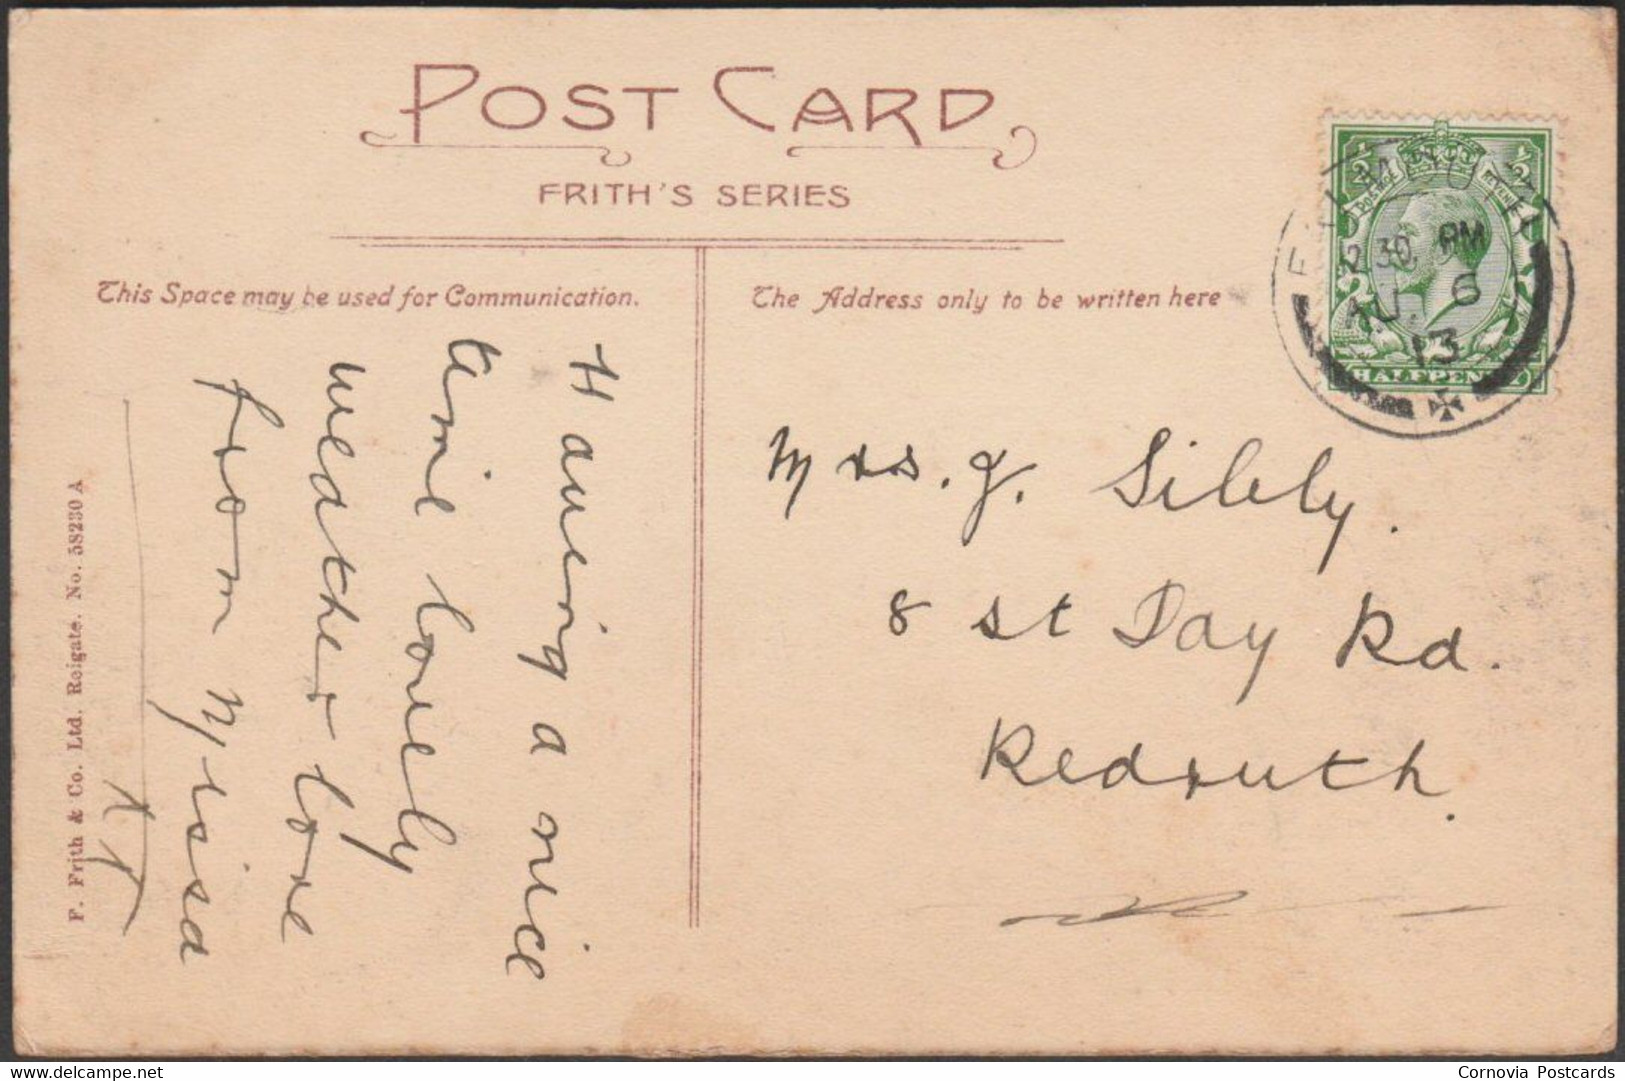 POST CARD
FRITH'S SERIES
This Space may be used for Communication.
The Address only to be written here
Having a nice
time lovely
weather love
from Nrisa
X T
Mrs. J. Sibly.
8 St Day Rd.
Redruth.
F. Frith & Co. Ltd. Reigate. No. 58230 A
½ ½
POSTAGE REVENUE
HALFPENNY
FALMOUTH
2 30 PM
AU 6
13
delcampe.net
Cornovia Postcards